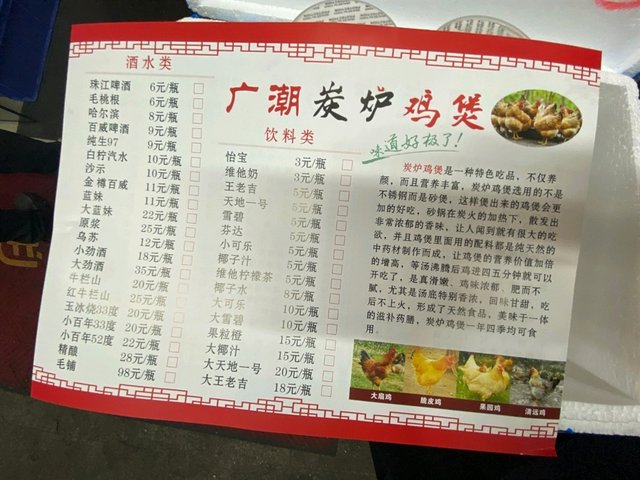 酒水类
珠江啤酒 6元/瓶
毛桃根 6元/瓶
哈尔滨 8元/瓶
百威啤酒 9元/瓶
纯生97 9元/瓶
白柠汽水 10元/瓶
沙示 10元/瓶
金樽百威 11元/瓶
蓝妹 11元/瓶
大蓝妹 22元/瓶
原浆 25元/瓶
乌苏 12元/瓶
小劲酒 18元/瓶
大劲酒 35元/瓶
牛栏山 20元/瓶
红牛栏山 25元/瓶
玉冰烧33度 20元/瓶
小百年33度 20元/瓶
小百年52度 22元/瓶
精酿 28元/瓶
毛铺 98元/瓶
广潮炭炉鸡煲
味道好极了!
饮料类
怡宝 3元/瓶
维他奶 3元/瓶
王老吉 5元/瓶
天地一号 5元/瓶
雪碧 5元/瓶
芬达 5元/瓶
小可乐 5元/瓶
椰子汁 5元/瓶
维他柠檬茶 5元/瓶
椰子水 8元/瓶
大可乐 10元/瓶
大雪碧 10元/瓶
果粒橙 15元/瓶
大椰汁 15元/瓶
大天地一号 20元/瓶
大王老吉 18元/瓶
炭炉鸡煲是一种特色吃品,不仅养
颜,而且营养丰富,炭炉鸡煲选用的不是
不锈钢而是砂煲,这样煲出来的鸡煲会更
加的好吃,砂锅在炭火的加热下,散发出
非常浓郁的香味,让人闻到就有很大的吃
欲,并且鸡煲里面用的配料都是纯天然的
中药材制作而成,让鸡煲的营养价值加倍
的增高,等汤沸腾后鸡进四五分钟就可以
开吃了,是真滑嫩、鸡味浓郁、肥而不
腻,尤其是汤底特别香浓,回味甘甜,吃
后不上火,形成了天然食品,美味于一体
的滋补药膳,炭炉鸡煲一年四季均可食
用.
大扇鸡
脆皮鸡
果园鸡
清远鸡